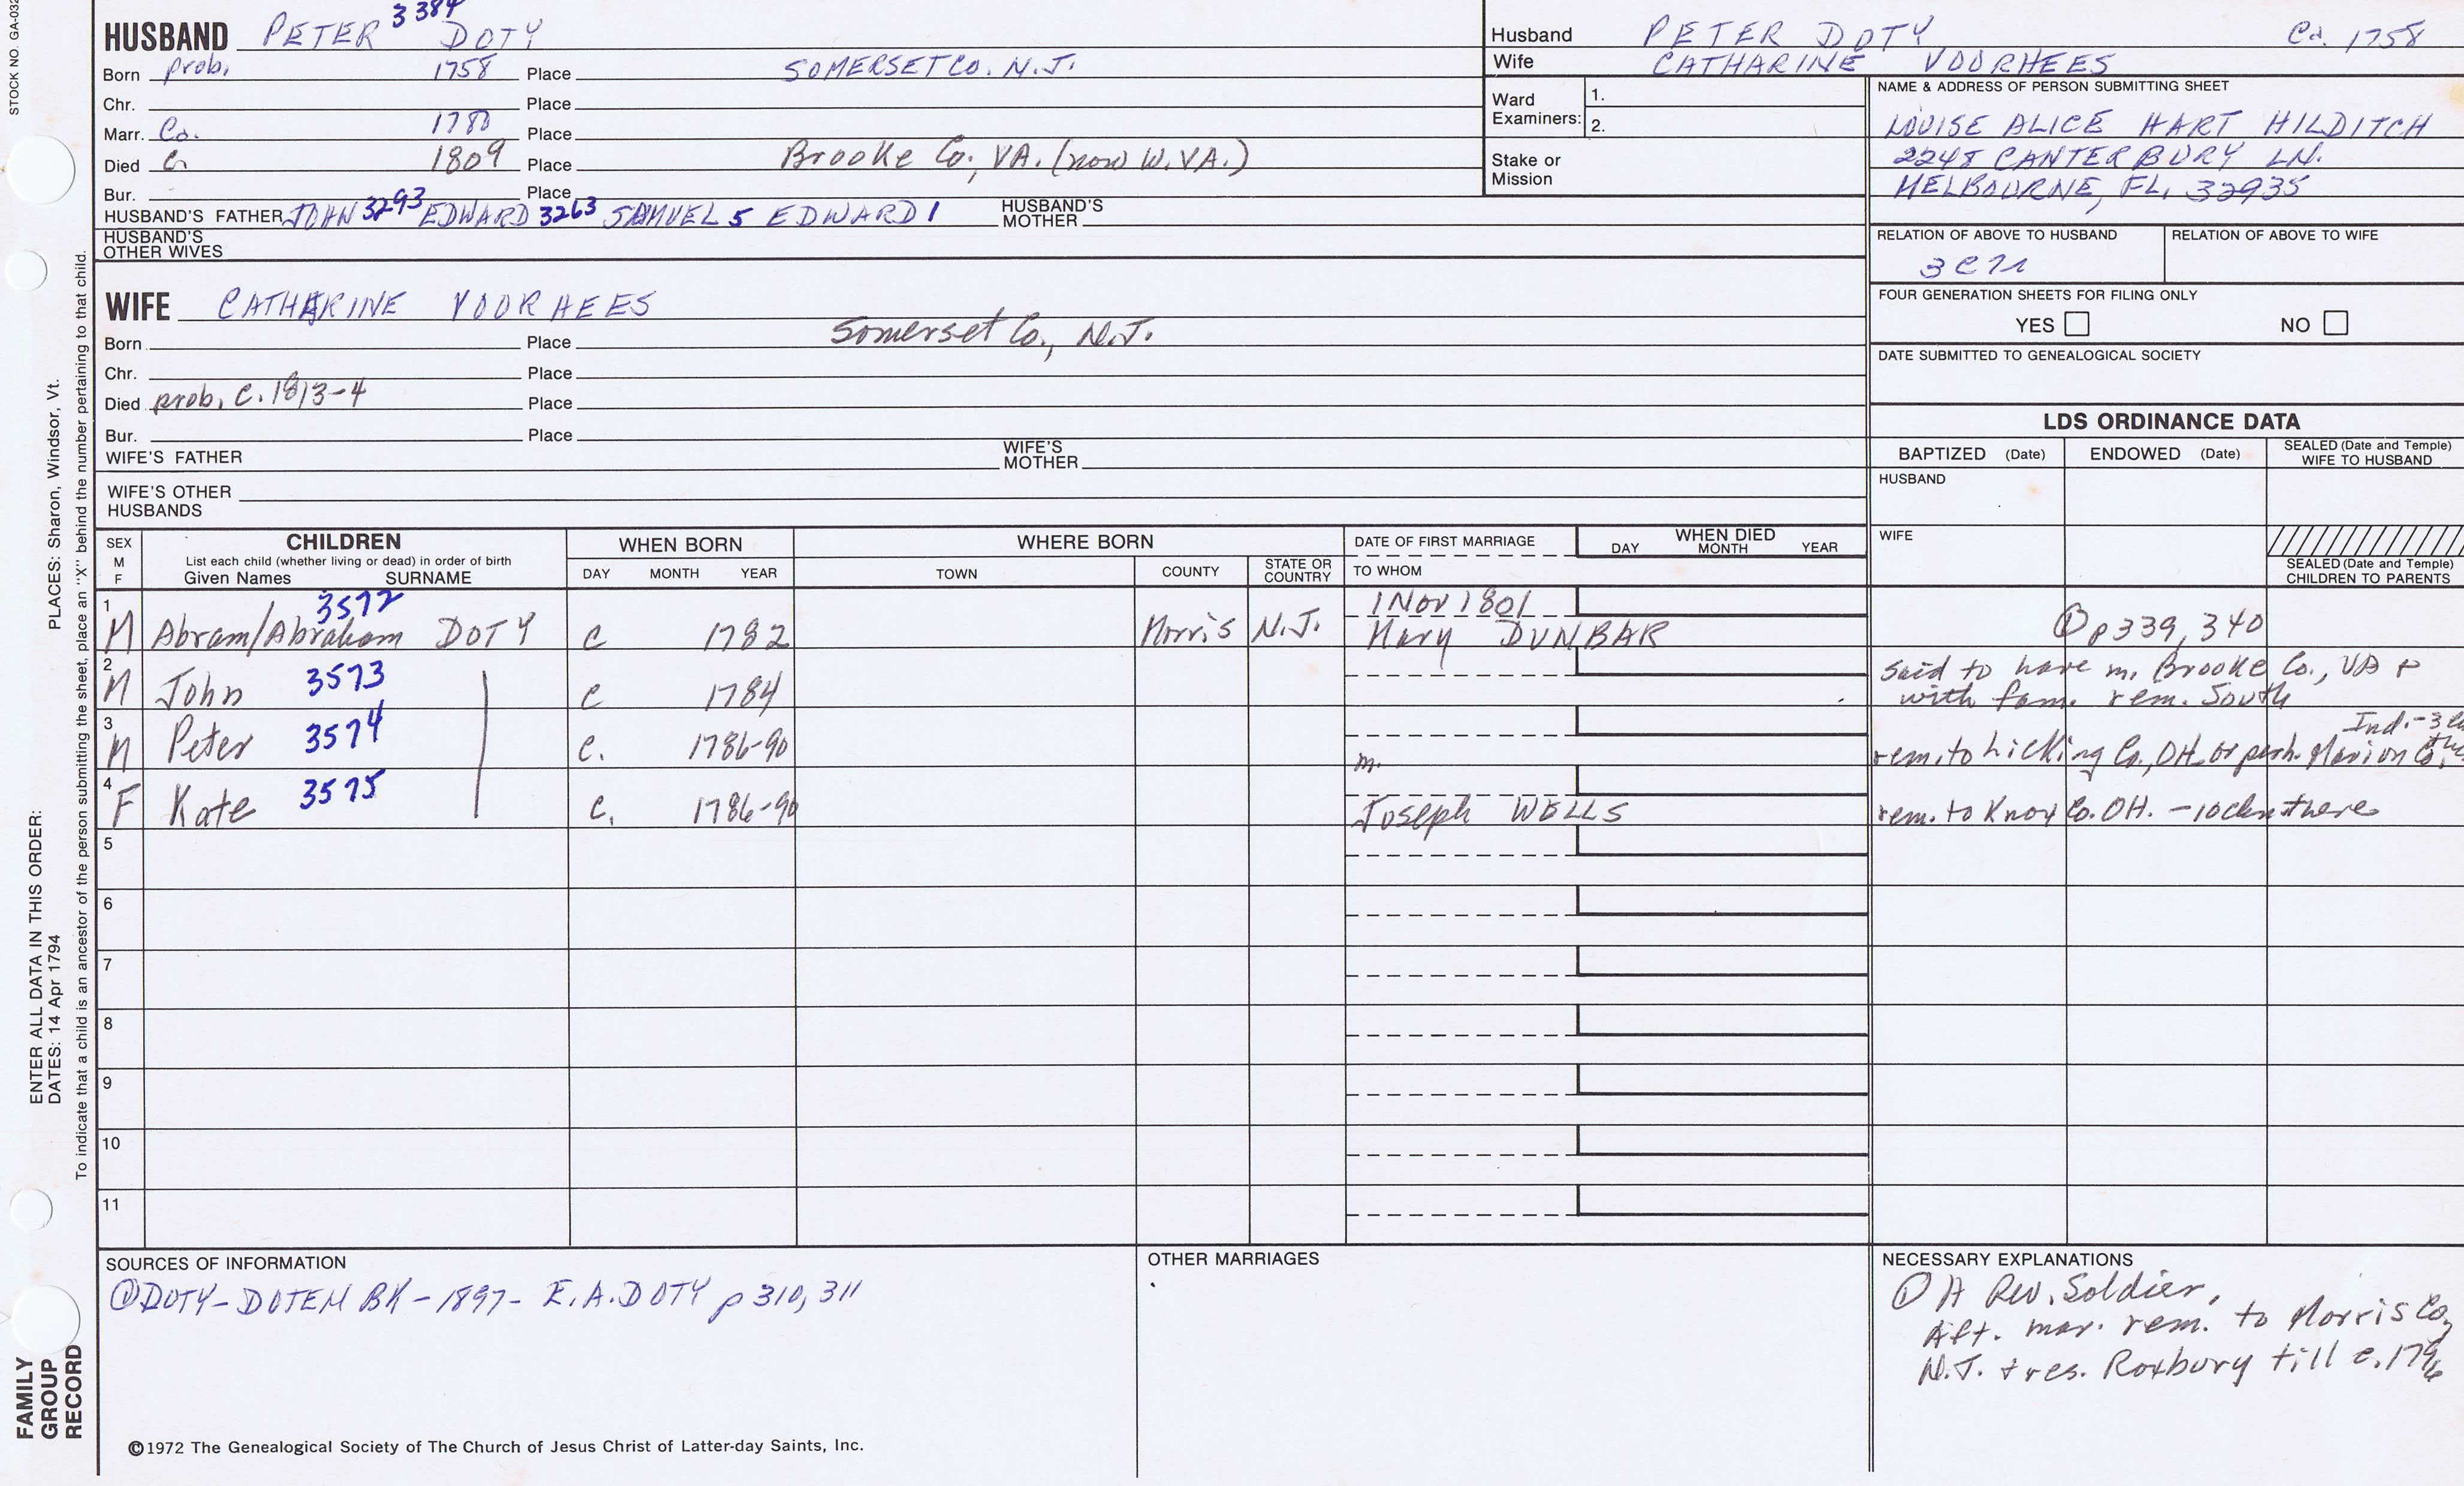 STOCK NO. GA-032
HUSBAND PETER 3384 DOTY
Born prob. 1758 Place SOMERSET CO. N.J.
Chr. Place
Marr. Ca. 1780 Place
Died C. 1809 Place Brooke Co., VA. (now W.VA.)
Bur. Place
HUSBAND'S FATHER JOHN 3293 EDWARD 3263 SAMUEL 5 EDWARD 1 HUSBAND'S MOTHER
HUSBAND'S OTHER WIVES
Husband PETER DOTY Ca. 1758
Wife CATHARINE VOORHEES
Ward Examiners: 1.
2.
Stake or Mission
NAME & ADDRESS OF PERSON SUBMITTING SHEET
LOUISE ALICE HART HILDITCH
2248 CANTERBURY LN.
MELBOURNE, FL, 32935
RELATION OF ABOVE TO HUSBAND RELATION OF ABOVE TO WIFE
FOUR GENERATION SHEETS FOR FILING ONLY
YES NO
DATE SUBMITTED TO GENEALOGICAL SOCIETY
WIFE CATHARINE VOORHEES
Born Place Somerset Co., N.J.
Chr. Place
Died prob. C. 1813-4 Place
Bur. Place
WIFE'S FATHER WIFE'S MOTHER
WIFE'S OTHER HUSBANDS
LDS ORDINANCE DATA
BAPTIZED (Date) ENDOWED (Date) SEALED (Date and Temple) WIFE TO HUSBAND
HUSBAND
WIFE
SEALED (Date and Temple) CHILDREN TO PARENTS
SEX M F CHILDREN List each child (whether living or dead) in order of birth Given Names SURNAME
WHEN BORN DAY MONTH YEAR
WHERE BORN TOWN COUNTY STATE OR COUNTRY
DATE OF FIRST MARRIAGE TO WHOM
WHEN DIED DAY MONTH YEAR
1 M Abram/Abraham 3572 DOTY C 1782 Morris N.J. 1 Nov 1801 Mary DUNBAR ① p 339, 340
2 M John 3573 C 1784 said to have m. Brooke Co., VA + with fam. rem. South
3 M Peter 3574 C. 1786-90 m. rem. to Licking Co., OH. or perh. Marion Co. Ind. -3
4 F Kate 3575 C. 1786-90 Joseph WELLS rem. to Knox Co. OH. - 10 chn there
5
6
7
8
9
10
11
SOURCES OF INFORMATION
① DOTY-DOTEN BK - 1897 - E.A. DOTY p 310, 311
OTHER MARRIAGES
NECESSARY EXPLANATIONS
① A Rev. Soldier.
Aft. mar. rem. to Morris Co,
N.J. + res. Roxbury till c. 1796
©1972 The Genealogical Society of The Church of Jesus Christ of Latter-day Saints, Inc.
FAMILY GROUP RECORD
ENTER ALL DATA IN THIS ORDER:
DATES: 14 Apr 1794
PLACES: Sharon, Windsor, Vt.
To indicate that a child is an ancestor of the person submitting the sheet, place an "X" behind the number pertaining to that child.